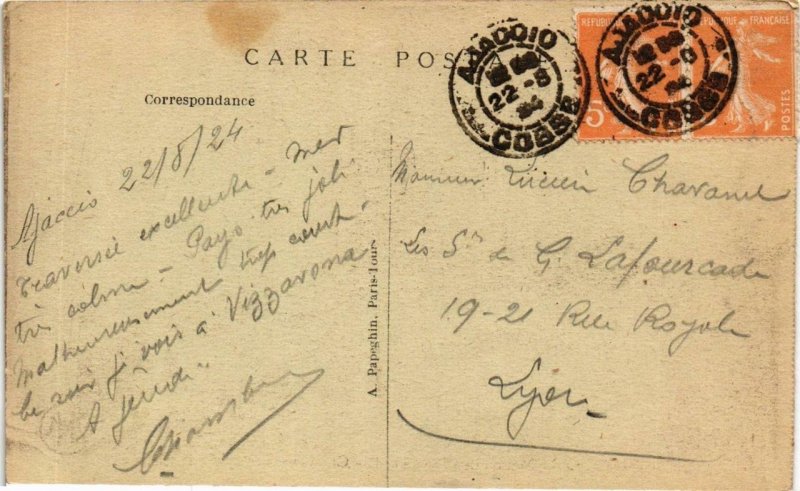 CARTE POSTALE
Correspondance
AJACCIO
22-8
24
CORSE
AJACCIO
22-8
24
CORSE
REPUBLIQUE FRANÇAISE
POSTES
5
Ajaccio 22/8/24
Traversée excellente - mer
très calme - Pays très joli
Malheureusement trop court -
Ce soir je vais à Vizzavona
A jeudi..
A. Papeghin, Paris-Tours
Monsieur Lucien Chavanel
Les Srs de G. Lafourcade
19-21 Rue Royale
Lyon